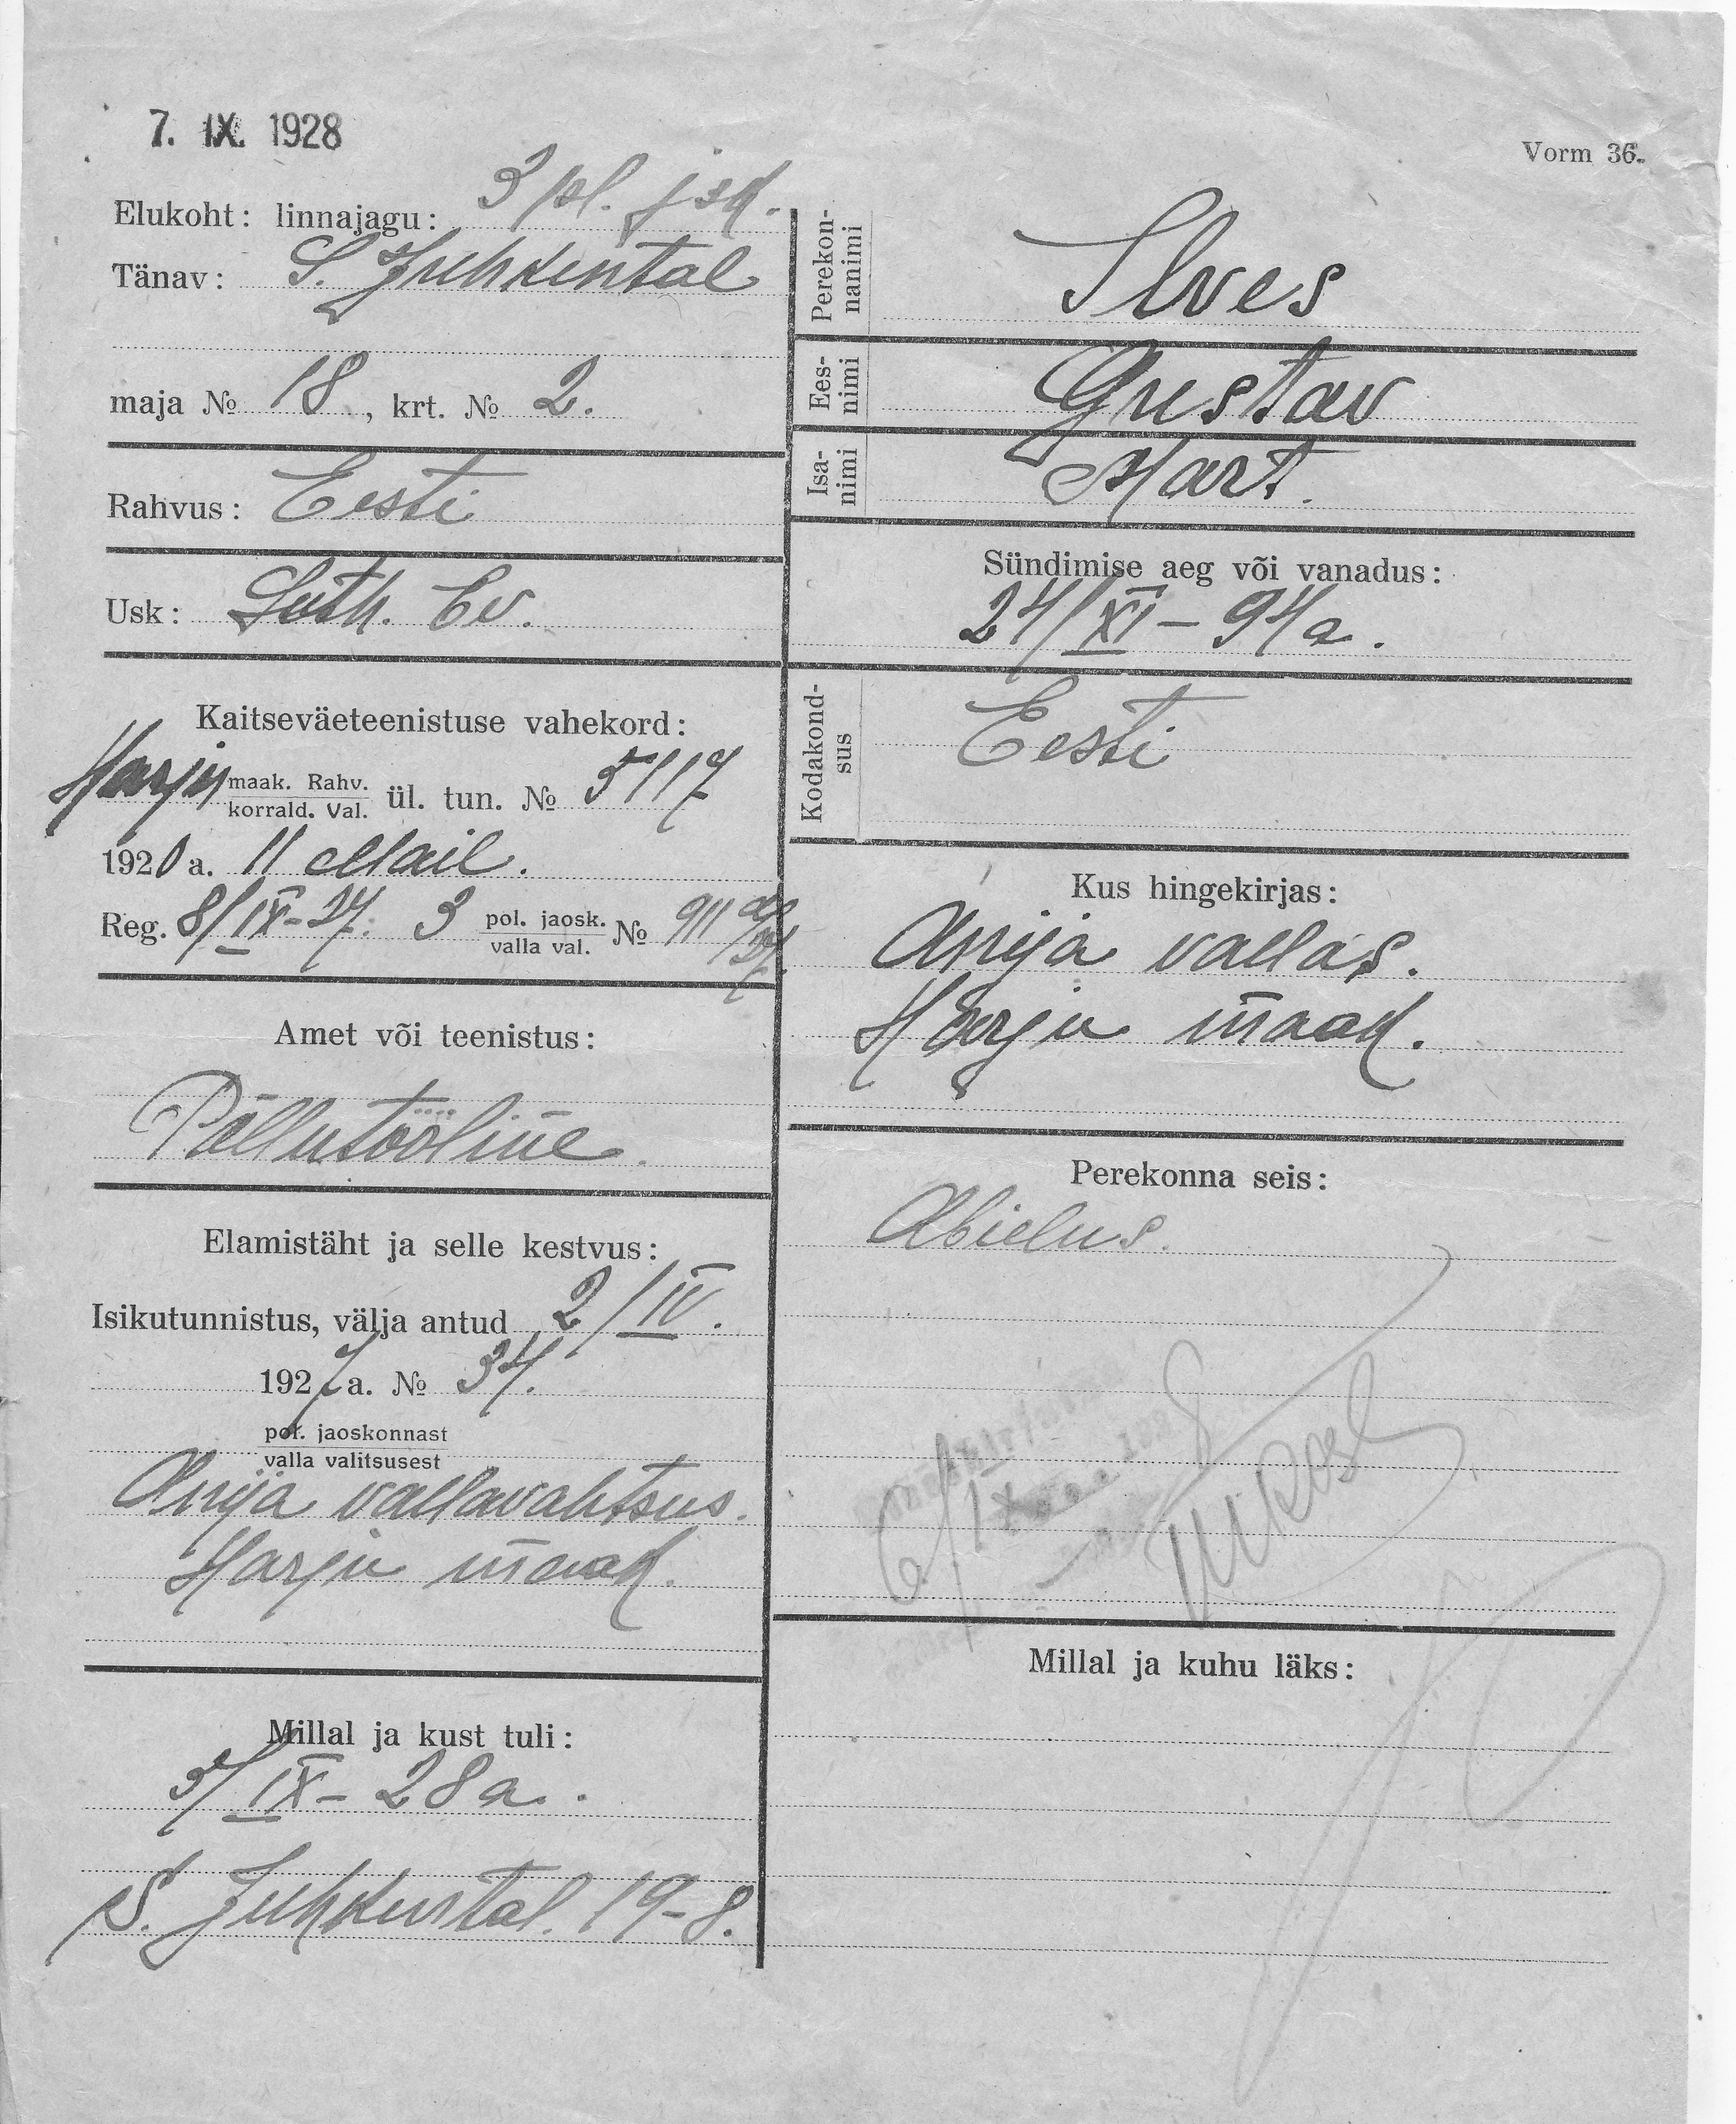 7. IX. 1928
Vorm 36.
Elukoht: linnajagu: 3 pl. jsk.
Tänav: S. Juhkental
maja № 18, krt. № 2.
Rahvus: Eesti
Usk: Luth. Ev.
Kaitseväeteenistuse vahekord:
Harju maak. Rahv.
korrald. Val. ül. tun. № 5117
1920 a. 11 Mail.
Reg. 8/IX-27. 3 pol. jaosk.
valla val. № 911
Amet või teenistus:
Põllutööline.
Elamistäht ja selle kestvus:
Isikutunnistus, välja antud 2/IV.
1927 a. № 34.
pol. jaoskonnast
valla valitsusest
Anija vallavalitsus.
Harju maak.
Millal ja kust tuli:
5/IX-28 a.
S. Juhkental. 19-8.
Perekon-
nanimi
Ilves
Ees-
nimi
Gustav
Isa-
nimi
Mart.
Sündimise aeg või vanadus:
24/XI-94 a.
Kodakond-
sus
Eesti
Kus hingekirjas:
Anija vallas.
Harju maak.
Perekonna seis:
Abielus.
6/IX
Millal ja kuhu läks: